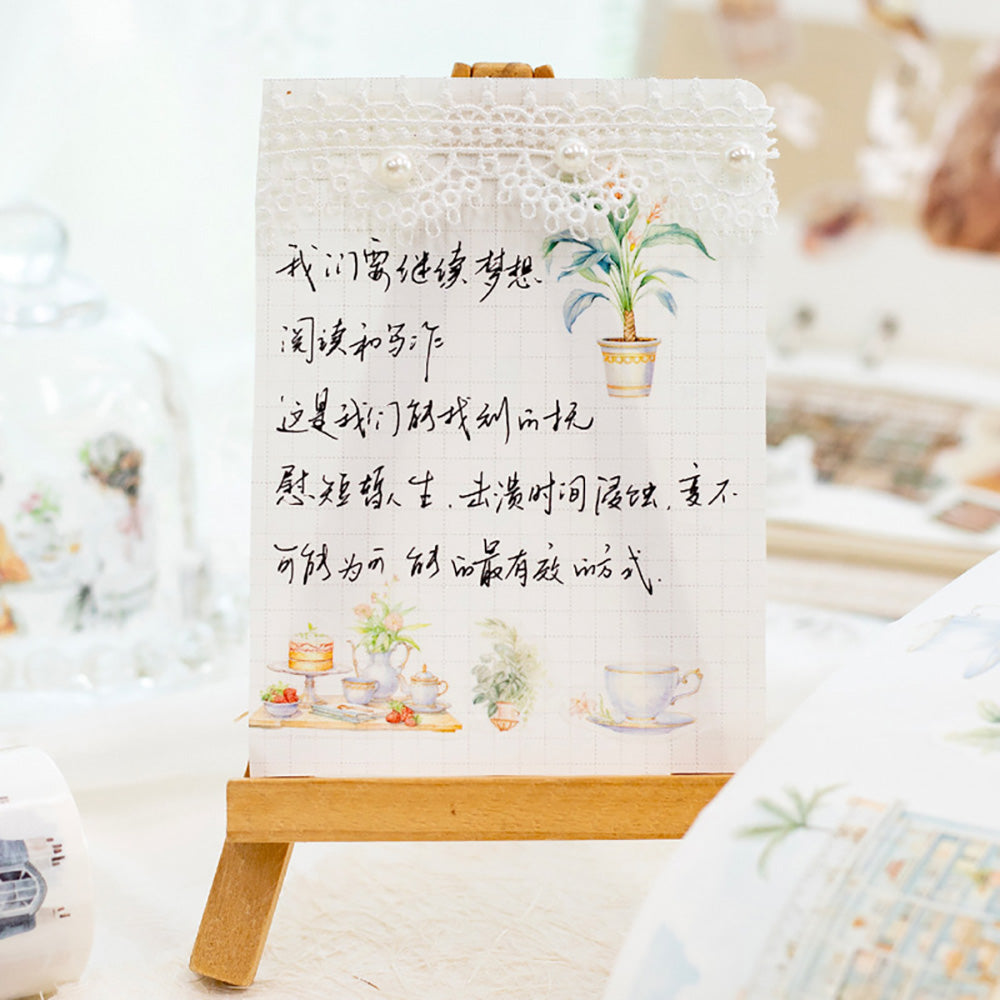 我们要继续梦想.
阅读和写作
这是我们能找到的抚
慰短暂人生.击溃时间侵蚀.变不
可能为可能的最有效的方式.